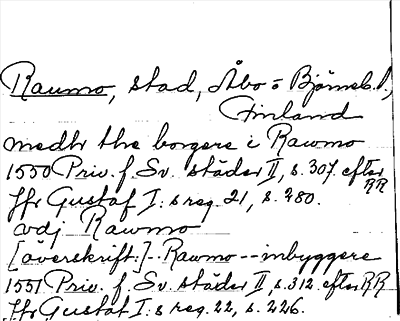 Raumo, stad, Åbo o Björneb. l.,
Finland
medh the borgere i Rawmo
1550 Priv. f. Sv. städer II, s. 307. efter RR
ffr Gustaf I:s reg. 21, s. 280.
adj Rawmo
[överskrift:]--Rawmo--inbyggere
1551 Priv. f. Sv. städer II, s. 312. efter RR
ffr Gustaf I:s reg. 22, s. 226.